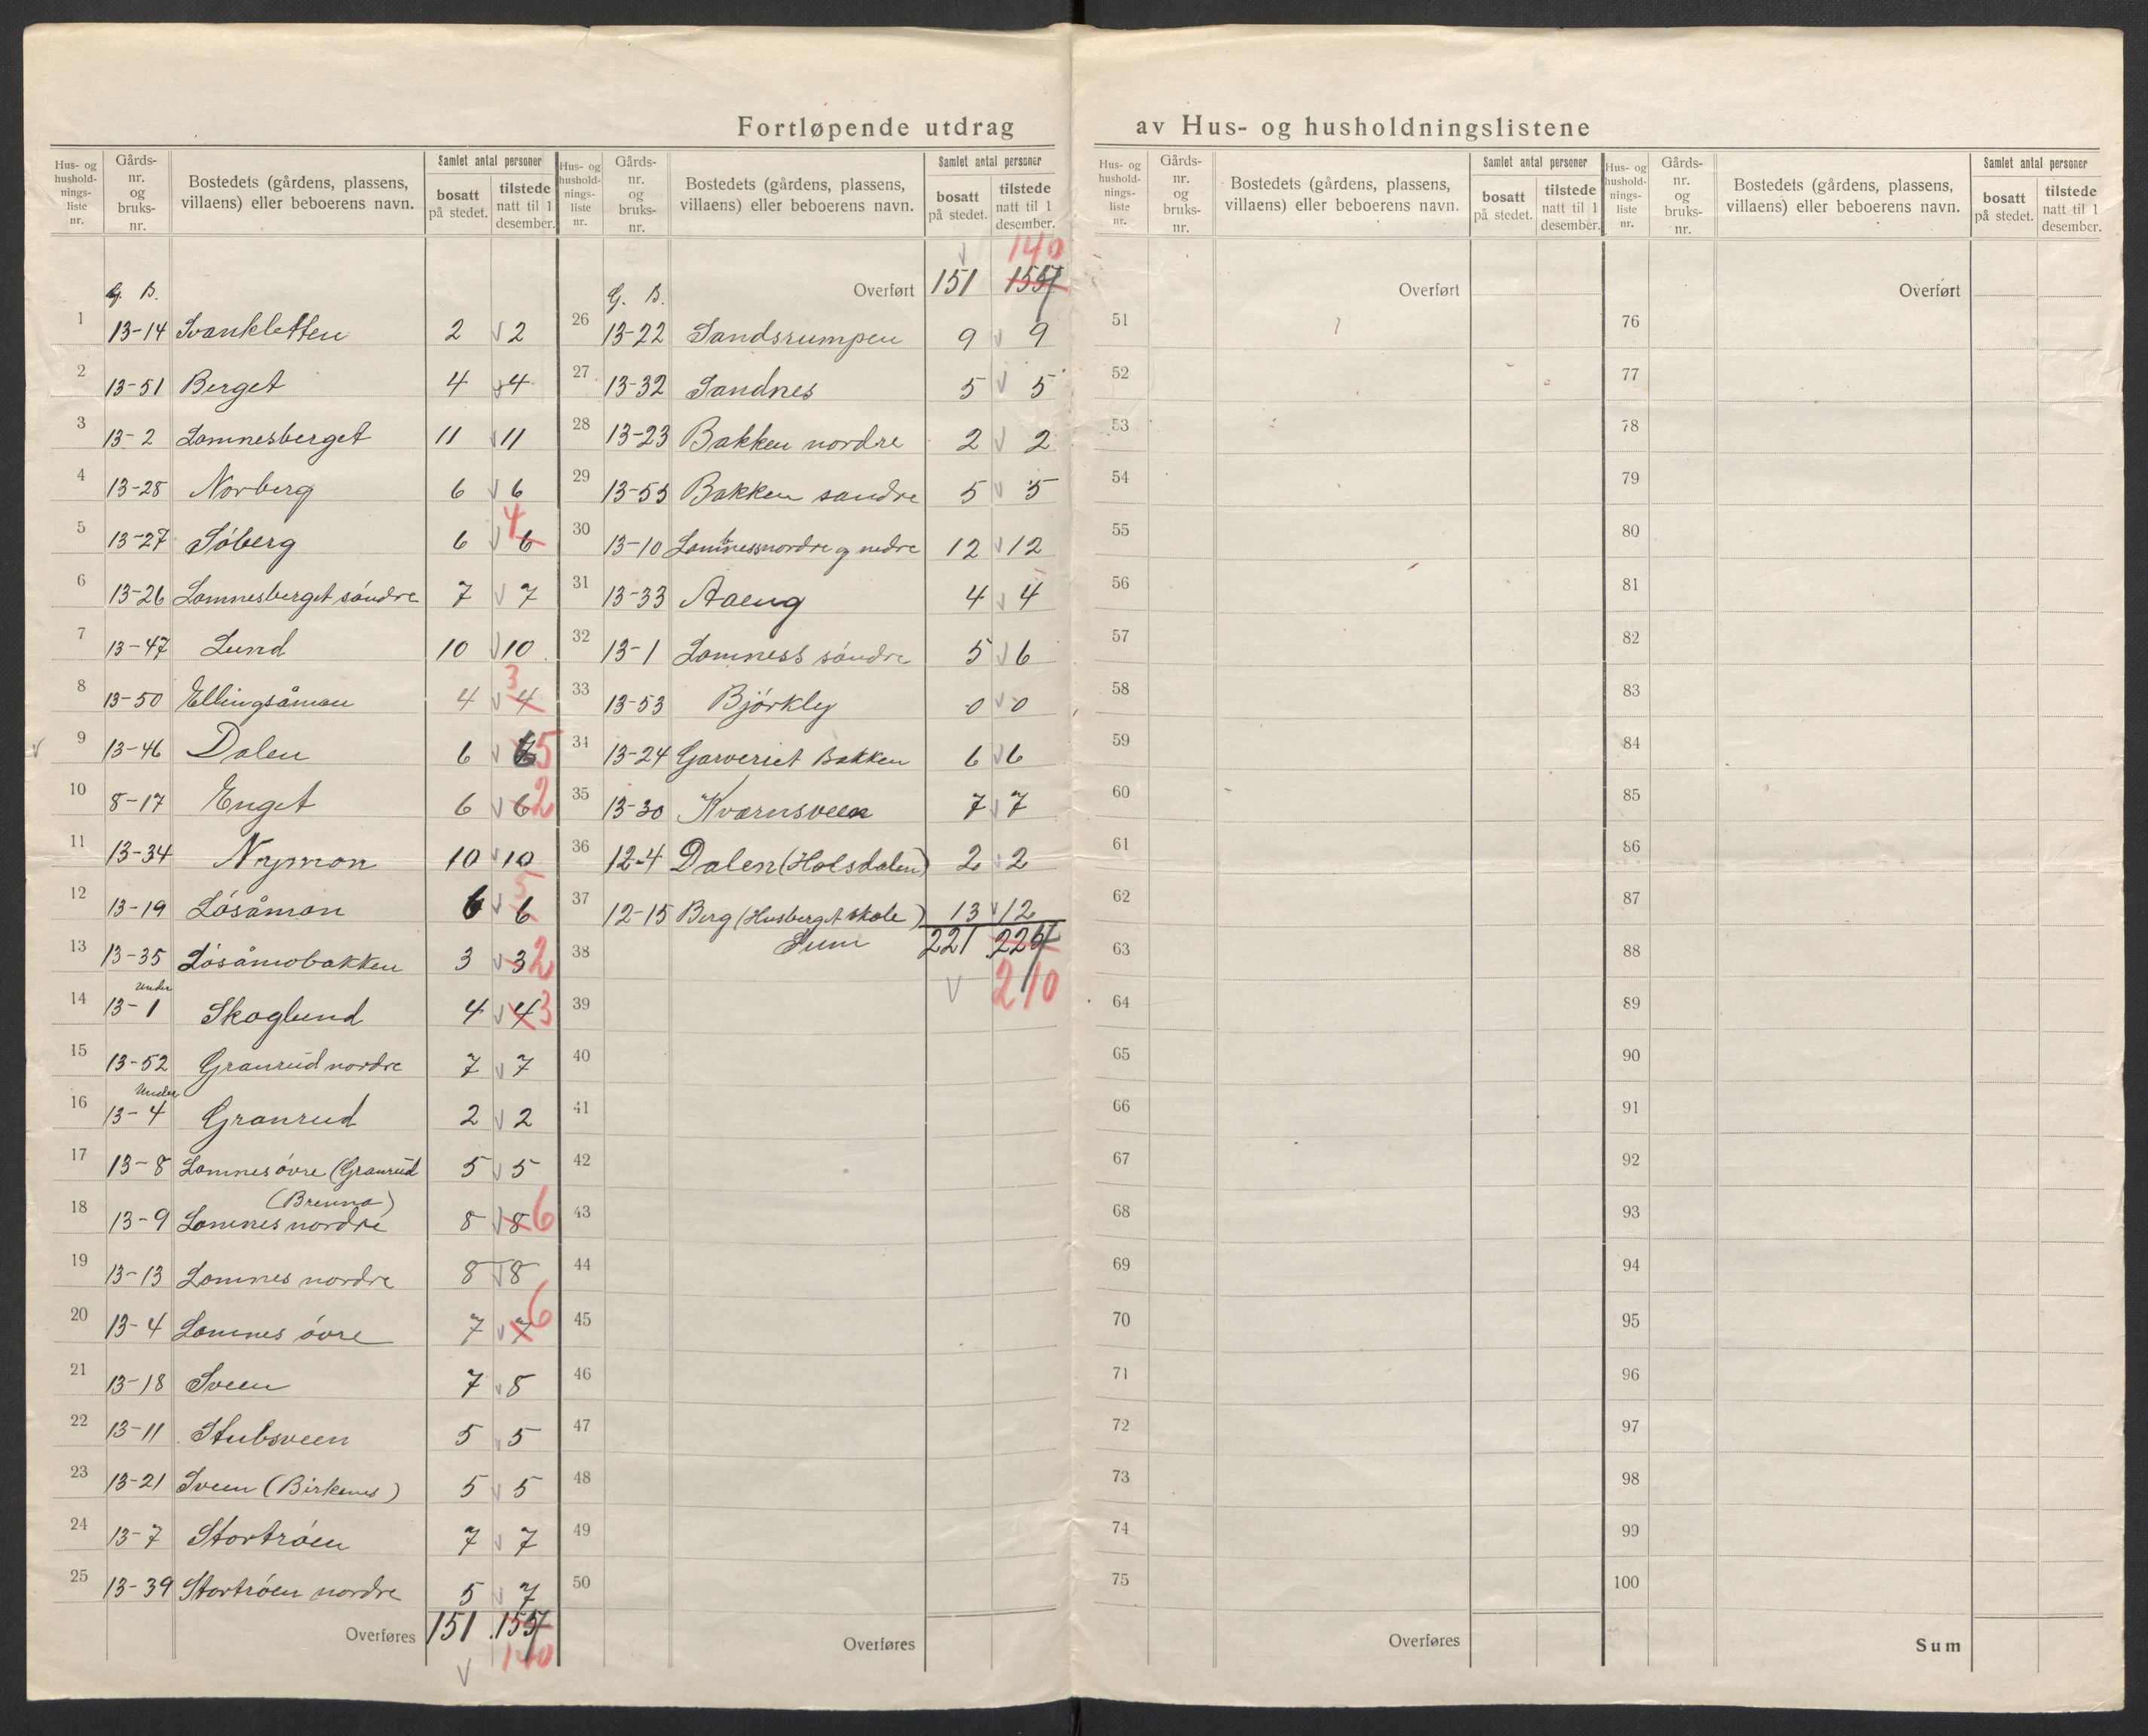 Fortløpende utdrag av Hus- og husholdningslistene
Hus- og hushold-nings-liste nr. Gårds-nr. og bruks-nr. Bostedets (gårdens, plassens, villaens) eller beboerens navn. Samlet antal personer bosatt på stedet. tilstede natt til 1 desember.
G. B.
1 13-14 Svankletten 2 2
2 13-51 Berget 4 4
3 13-2 Lomnesberget 11 11
4 13-28 Norberg 6 6
5 13-27 Söberg 6 6 4
6 13-26 Lomnesberget söndre 7 7
7 13-47 Lund 10 10
8 13-50 Ellingsåmon 4 4 3
9 13-46 Dalen 6 6 5
10 8-17 Enget 6 6 2
11 13-34 Nymon 10 10
12 13-19 Lösåmon 6 6 5
13 13-35 Lösåmobakken 3 3 2
14 Under 13-1 Skoglund 4 4 3
15 13-52 Granrud nordre 7 7
16 Under 13-4 Granrud 2 2
17 13-8 Lomnes övre (Granrud 5 5
(Brenna)
18 13-9 Lomnes nordre 8 8 6
19 13-13 Lomnes nordre 8 8
20 13-4 Lomnes övre 7 7 6
21 13-18 Sveen 7 8
22 13-11 Stubsveen 5 5
23 13-21 Sveen (Birkenes) 5 5
24 13-7 Stortröen 7 7
25 13-39 Stortröen nordre 5 7
Overføres 151 157
140
Hus- og hushold-nings-liste nr. Gårds-nr. og bruks-nr. Bostedets (gårdens, plassens, villaens) eller beboerens navn. Samlet antal personer bosatt på stedet. tilstede natt til 1 desember.
140
G. B. Overført 151 157
26 13-22 Sandsrumpen 9 9
27 13-32 Sandnes 5 5
28 13-23 Bakken nordre 2 2
29 13-55 Bakken söndre 5 5
30 13-10 Lomnessnordre og nedre 12 12
31 13-33 Aaeng 4 4
32 13-1 Lomness söndre 5 6
33 13-53 Björkly 0 0
34 13-24 Garveriet Bakken 6 6
35 13-30 Kvernsveen 7 7
36 12-4 Dalen (Holsdalen) 2 2
37 12-15 Berg (Husberget skole) 13 12
38 Sum 221 227
210
39
40
41
42
43
44
45
46
47
48
49
50
Overføres
Hus- og hushold-nings-liste nr. Gårds-nr. og bruks-nr. Bostedets (gårdens, plassens, villaens) eller beboerens navn. Samlet antal personer bosatt på stedet. tilstede natt til 1 desember.
Overført
51
52
53
54
55
56
57
58
59
60
61
62
63
64
65
66
67
68
69
70
71
72
73
74
75
Overføres
Hus- og hushold-nings-liste nr. Gårds-nr. og bruks-nr. Bostedets (gårdens, plassens, villaens) eller beboerens navn. Samlet antal personer bosatt på stedet. tilstede natt til 1 desember.
Overført
76
77
78
79
80
81
82
83
84
85
86
87
88
89
90
91
92
93
94
95
96
97
98
99
100
Sum